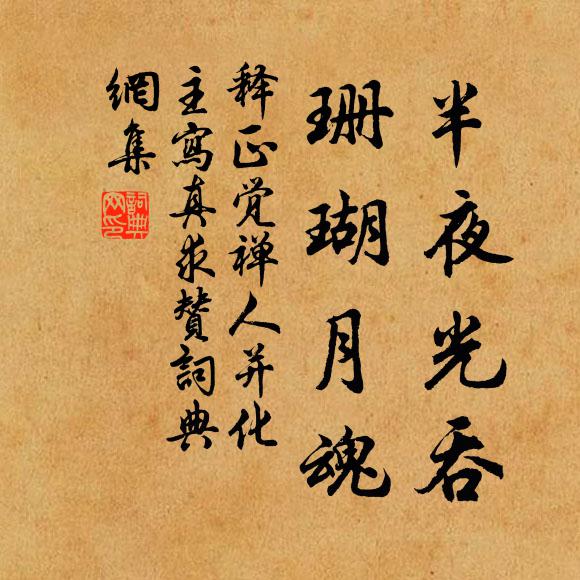 半夜光吞
珊瑚月魂
释正觉禅人并化
主寫真求賛詞典
網集
詞典網印